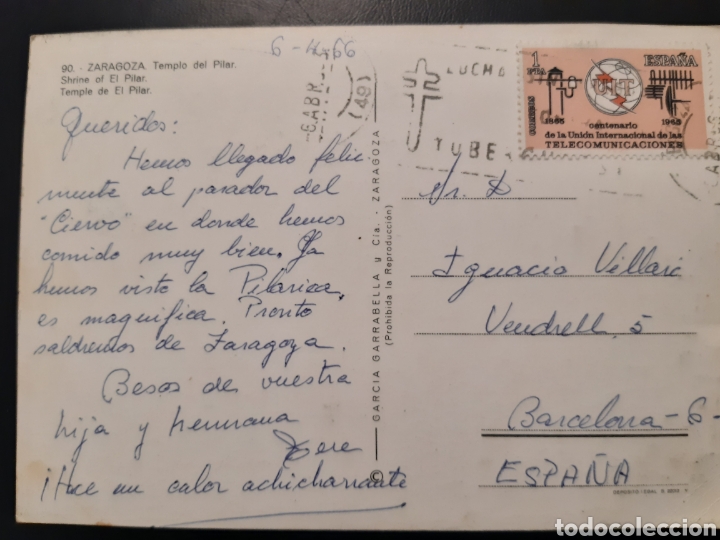 90. - ZARAGOZA. Templo del Pilar.
Shrine of El Pilar.
Temple de El Pilar.
6-4-66
Queridos:
Hemos llegado feliz
mente al parador del
"Ciervo" en donde hemos
comido muy bien. Ya
hemos visto la Pilarica,
es magnifica. Pronto
saldremos de Zaragoza.
Besos de vuestra
hija y hermana
Tere
¡Hace un calor achicharrante
© GARCIA GARRABELLA y Cía. - ZARAGOZA
(Prohibida la Reproducción)
6 ABR.
(49)
LUCHA
TUBE
1
PTA
ESPAÑA
CORREOS
UIT
1865 1965
centenario
de la Unión Internacional de las
TELECOMUNICACIONES
Sr. D
Ignacio Villari
Vendrell, 5
Barcelona-6-
ESPAÑA
DEPOSITO LEGAL B
todocoleccion.net